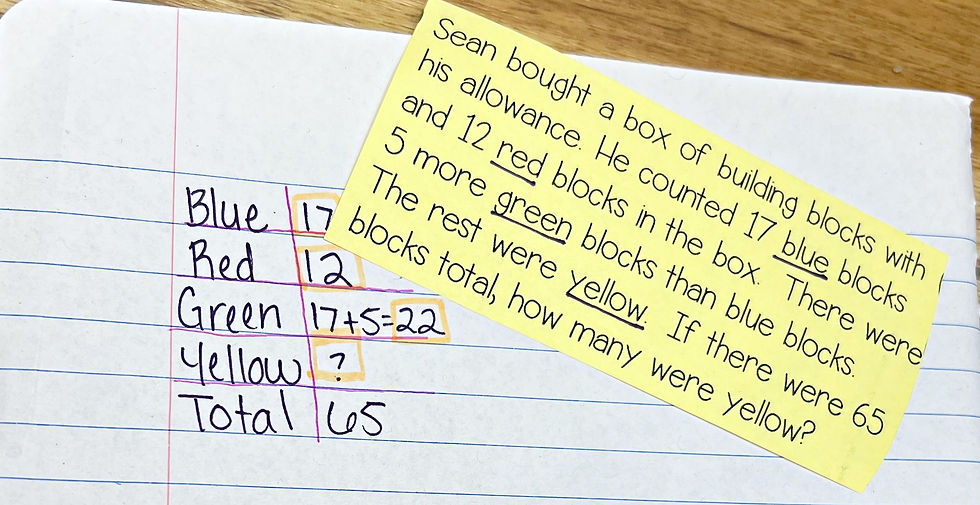 Sean bought a box of building blocks with
his allowance. He counted 17 blue blocks
and 12 red blocks in the box. There were
5 more green blocks than blue blocks.
The rest were yellow. If there were 65
blocks total, how many were yellow?
Blue 17
Red 12
Green 17+5=22
Yellow ?
Total 65